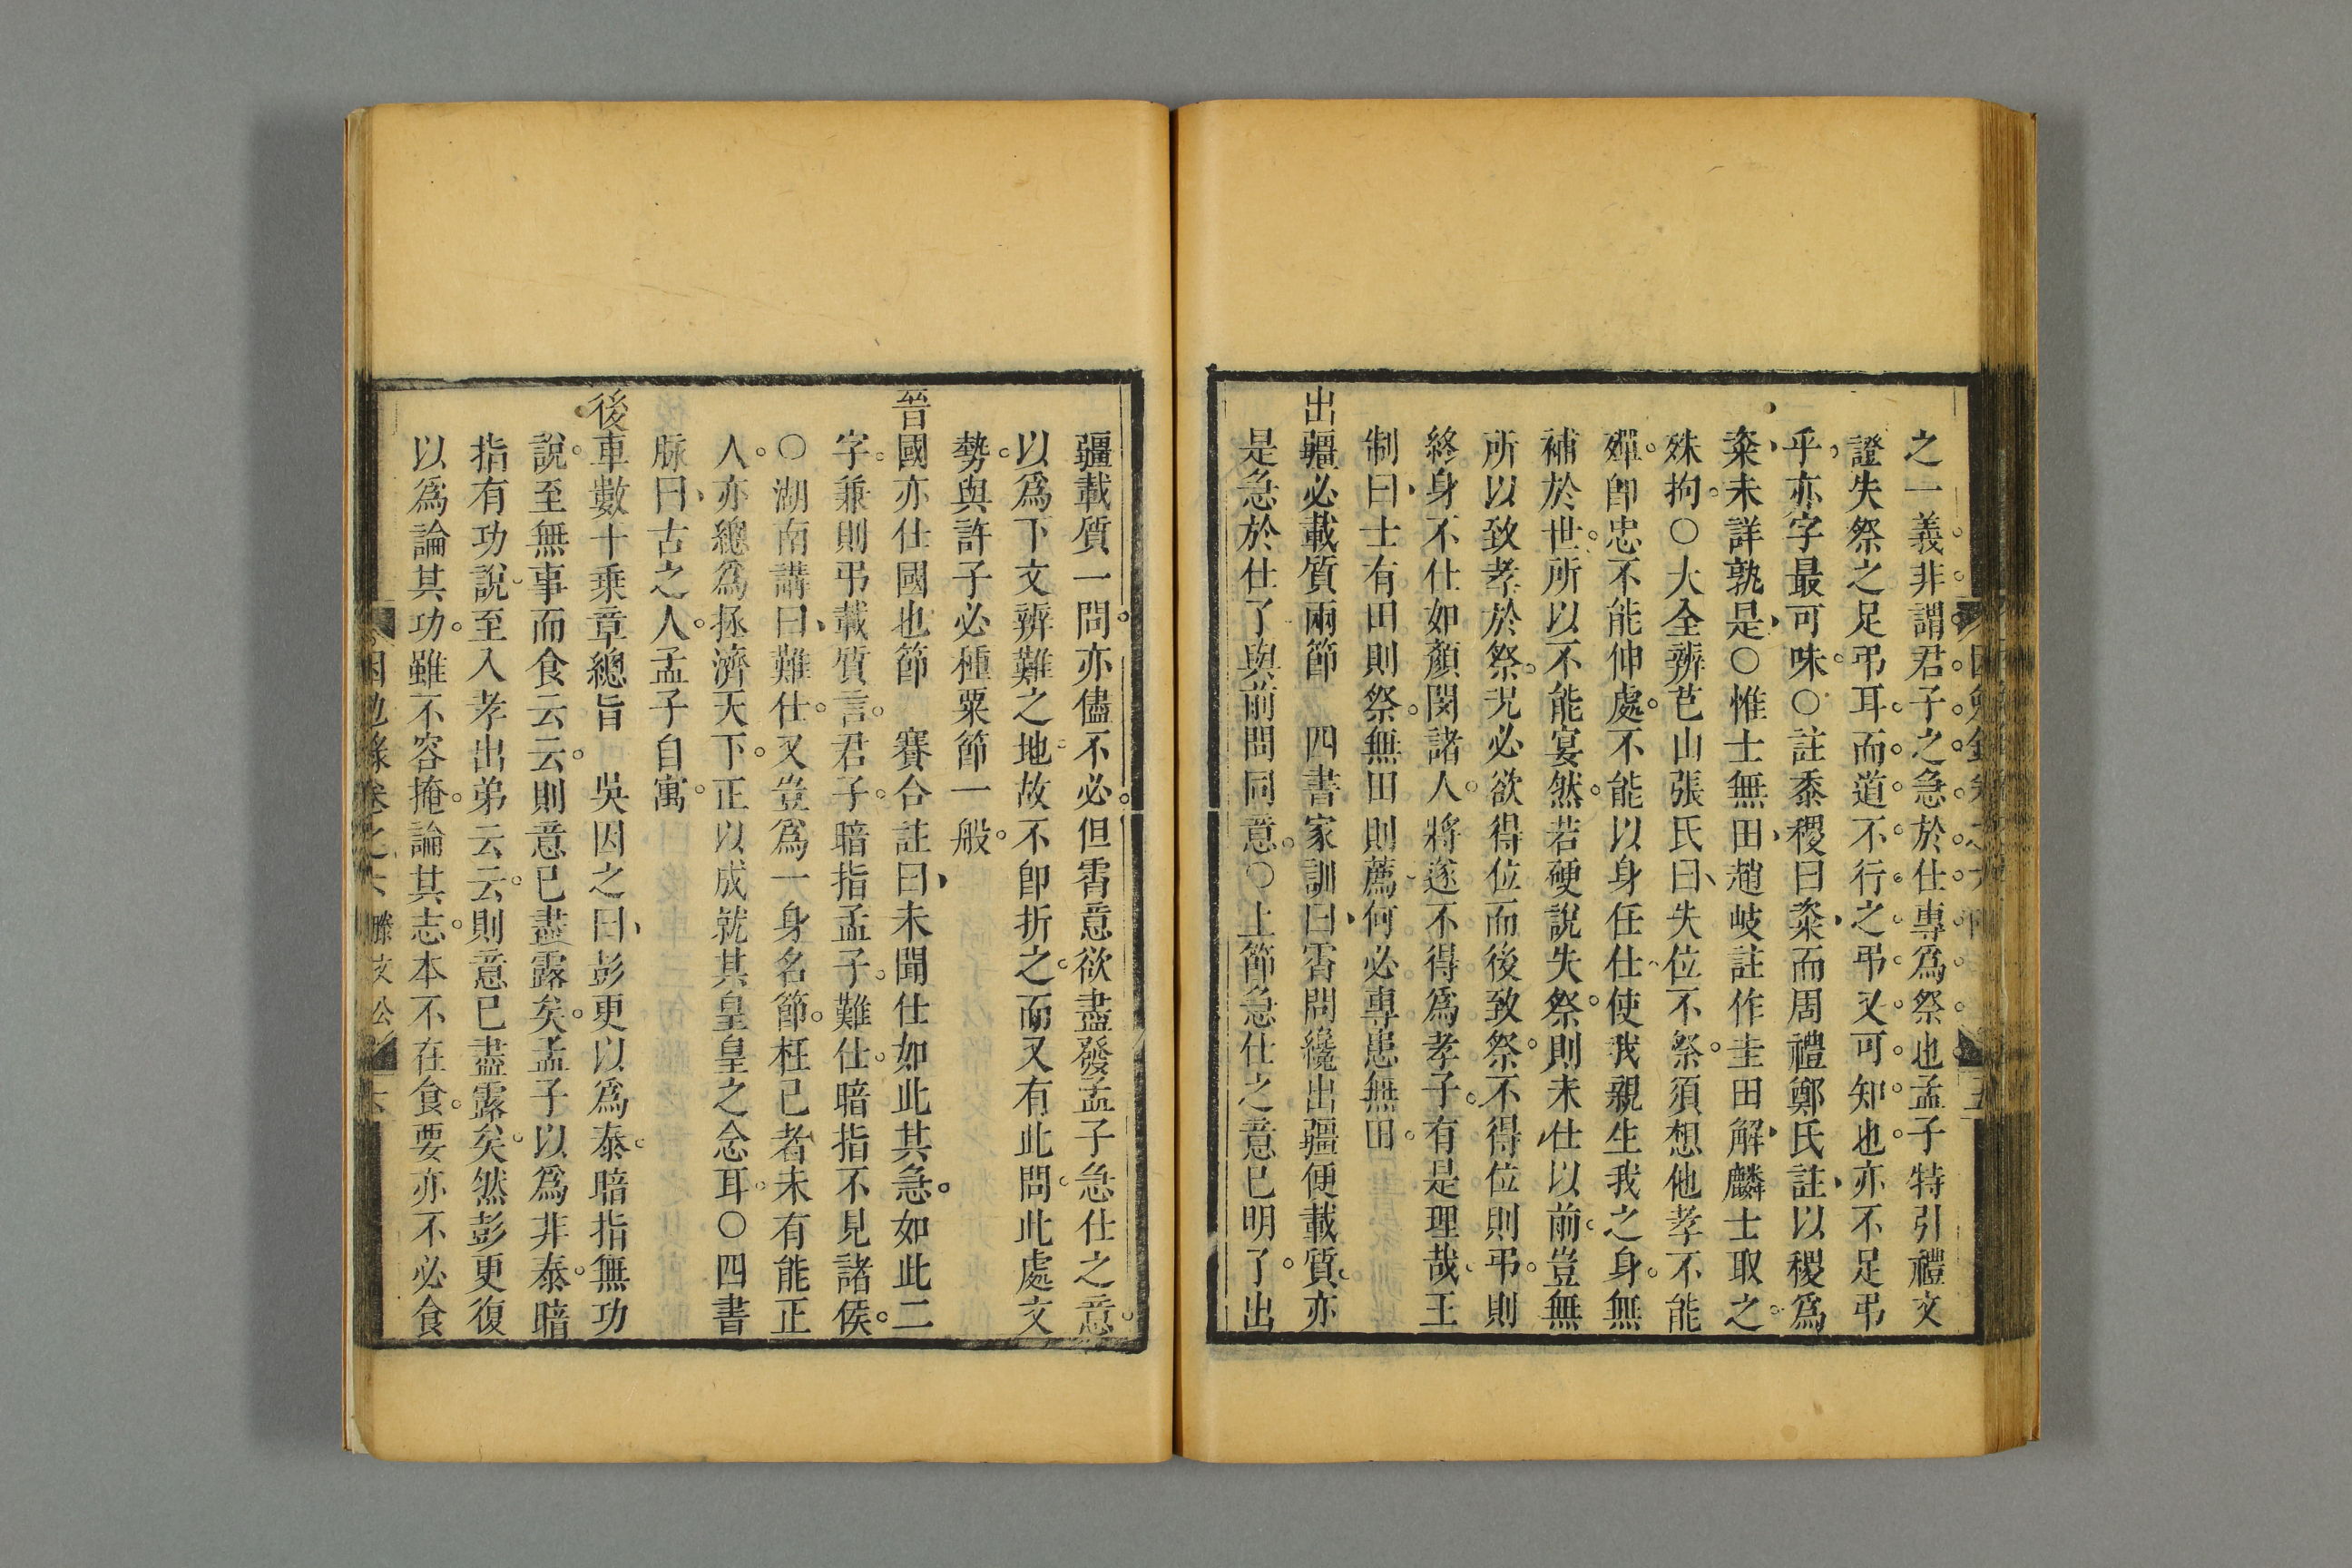 之一義非謂君子之急於仕專為祭也孟子特引禮文
證失祭之足弔耳而道不行之弔又可知也亦不足弔
乎亦字最可味○註黍稷曰粢而周禮鄭氏註以稷爲
粢未詳孰是○惟士無田趙岐註作圭田解麟士取之
殊拘○大全辨芑山張氏曰失位不祭須想他孝不能
殫卽忠不能伸處不能以身任仕使我親生我之身無
補於世所以不能宴然若硬說失祭則未仕以前豈無
所以致孝於祭兄必欲得位而後致祭不得位則弔則
終身不仕如顏閔諸人將遂不得爲孝子有是理哉王
制曰士有田則祭無田則薦何必專患無田
出疆必載質兩節　四書家訓曰霄問纔出疆便載質亦
是急於仕了與前問同意○上節急仕之意已明了出
疆載質一問亦儘不必但霄意欲盡發孟子急仕之意
以爲下文辨難之地故不卽折之而又有此問此處文
勢與許子必種粟節一般
晉國亦仕國也節　賽合註曰未聞仕如此其急如此二
字兼則弔載質言君子暗指孟子難仕暗指不見諸侯
○湖南講曰難仕又豈爲一身名節枉己者未有能正
人亦總爲拯濟天下正以成就其皇皇之念耳○四書
脉曰古之人孟子自寓
後車數十乘章總旨　吳因之曰彭更以爲泰暗指無功
說至無事而食云云則意已盡露矣孟子以爲非泰暗
指有功說至入孝出弟云云則意已盡露矣然彭更復
以爲論其功雖不容掩論其志本不在食要亦不必食
困勉錄卷之六 滕文公 六